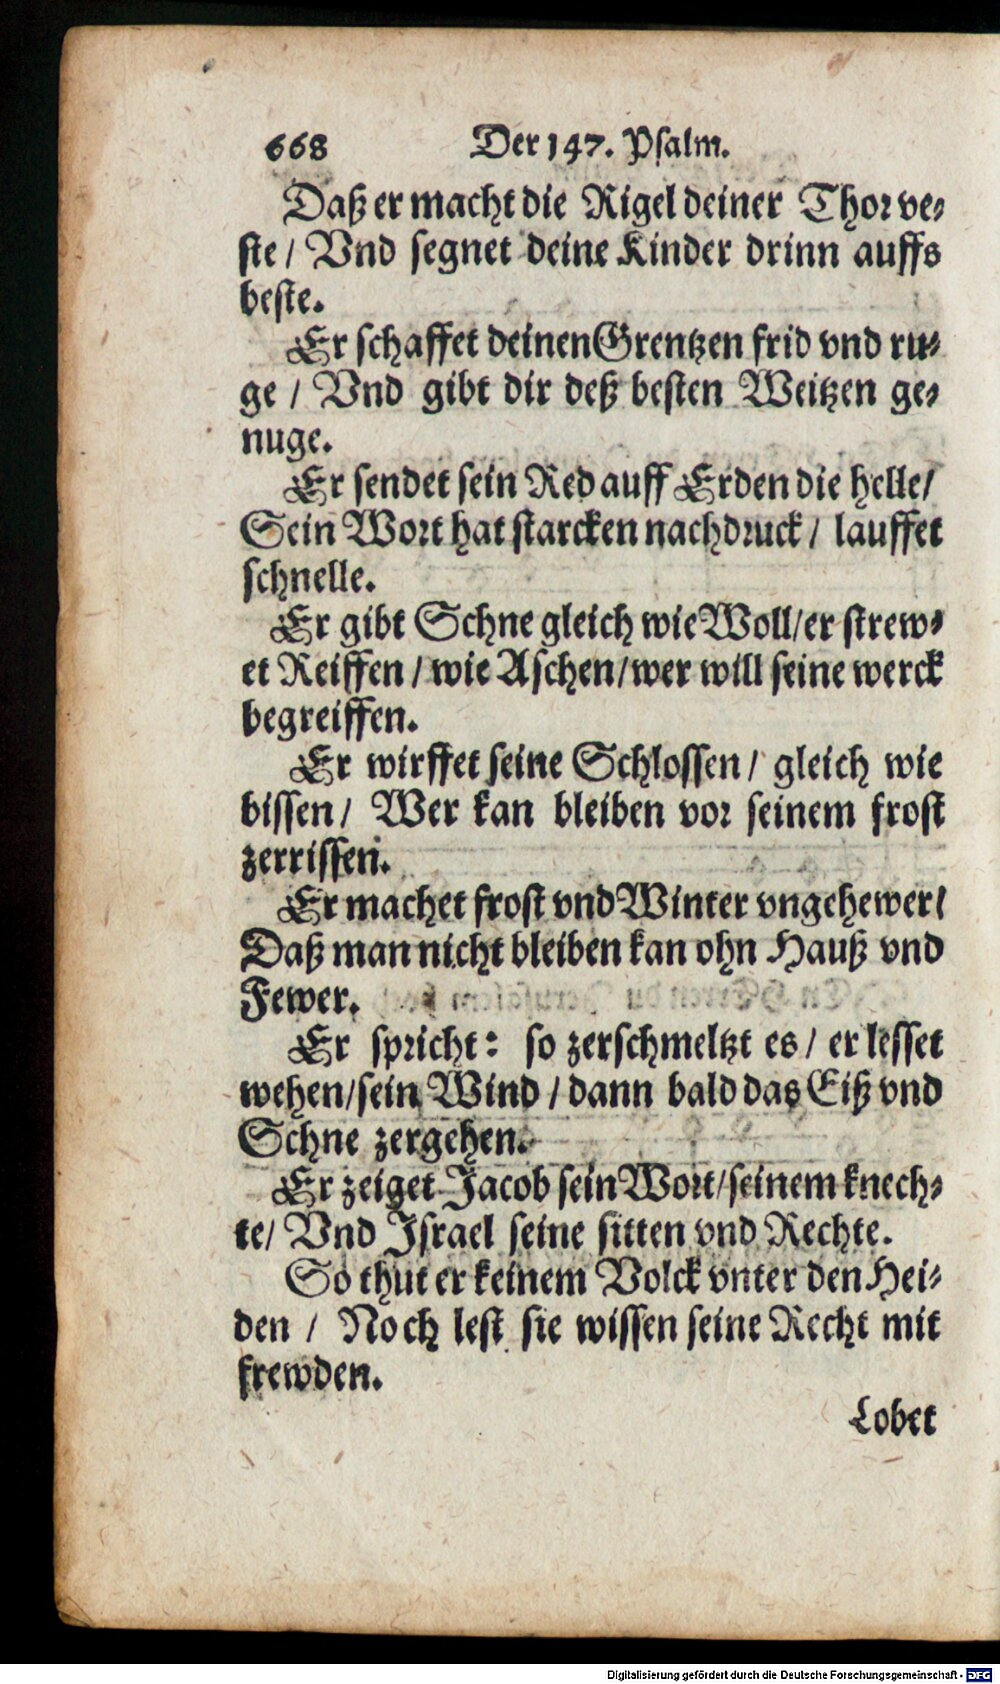 668 Der 147. Psalm.
Daß er macht die Rigel deiner Thor ve⸗
ste / Vnd segnet deine Kinder drinn auffs
beste.
Er schaffet deinen Grentzen frid vnd ru⸗
ge / Vnd gibt dir deß besten Weitzen ge⸗
nuge.
Er sendet sein Red auff Erden die helle/
Sein Wort hat starcken nachdruck / lauffet
schnelle.
Er gibt Schne gleich wie Woll/er strew⸗
et Reiffen / wie Aschen/wer will seine werck
begreiffen.
Er wirffet seine Schlossen / gleich wie
bissen / Wer kan bleiben vor seinem frost
zerrissen.
Er machet frost vnd Winter vngehewer/
Daß man nicht bleiben kan ohn Hauß vnd
Fewer.
Er spricht: so zerschmeltzt es / er lesset
wehen/sein Wind / dann bald das Eiß vnd
Schne zergehen.
Er zeiget Jacob sein Wort/seinem knech⸗
te/ Vnd Israel seine sitten vnd Rechte.
So thut er keinem Volck vnter den Hei⸗
den / Noch lest sie wissen seine Recht mit
frewden.
Lobet
Digitalisierung gefördert durch die Deutsche Forschungsgemeinschaft - DFG